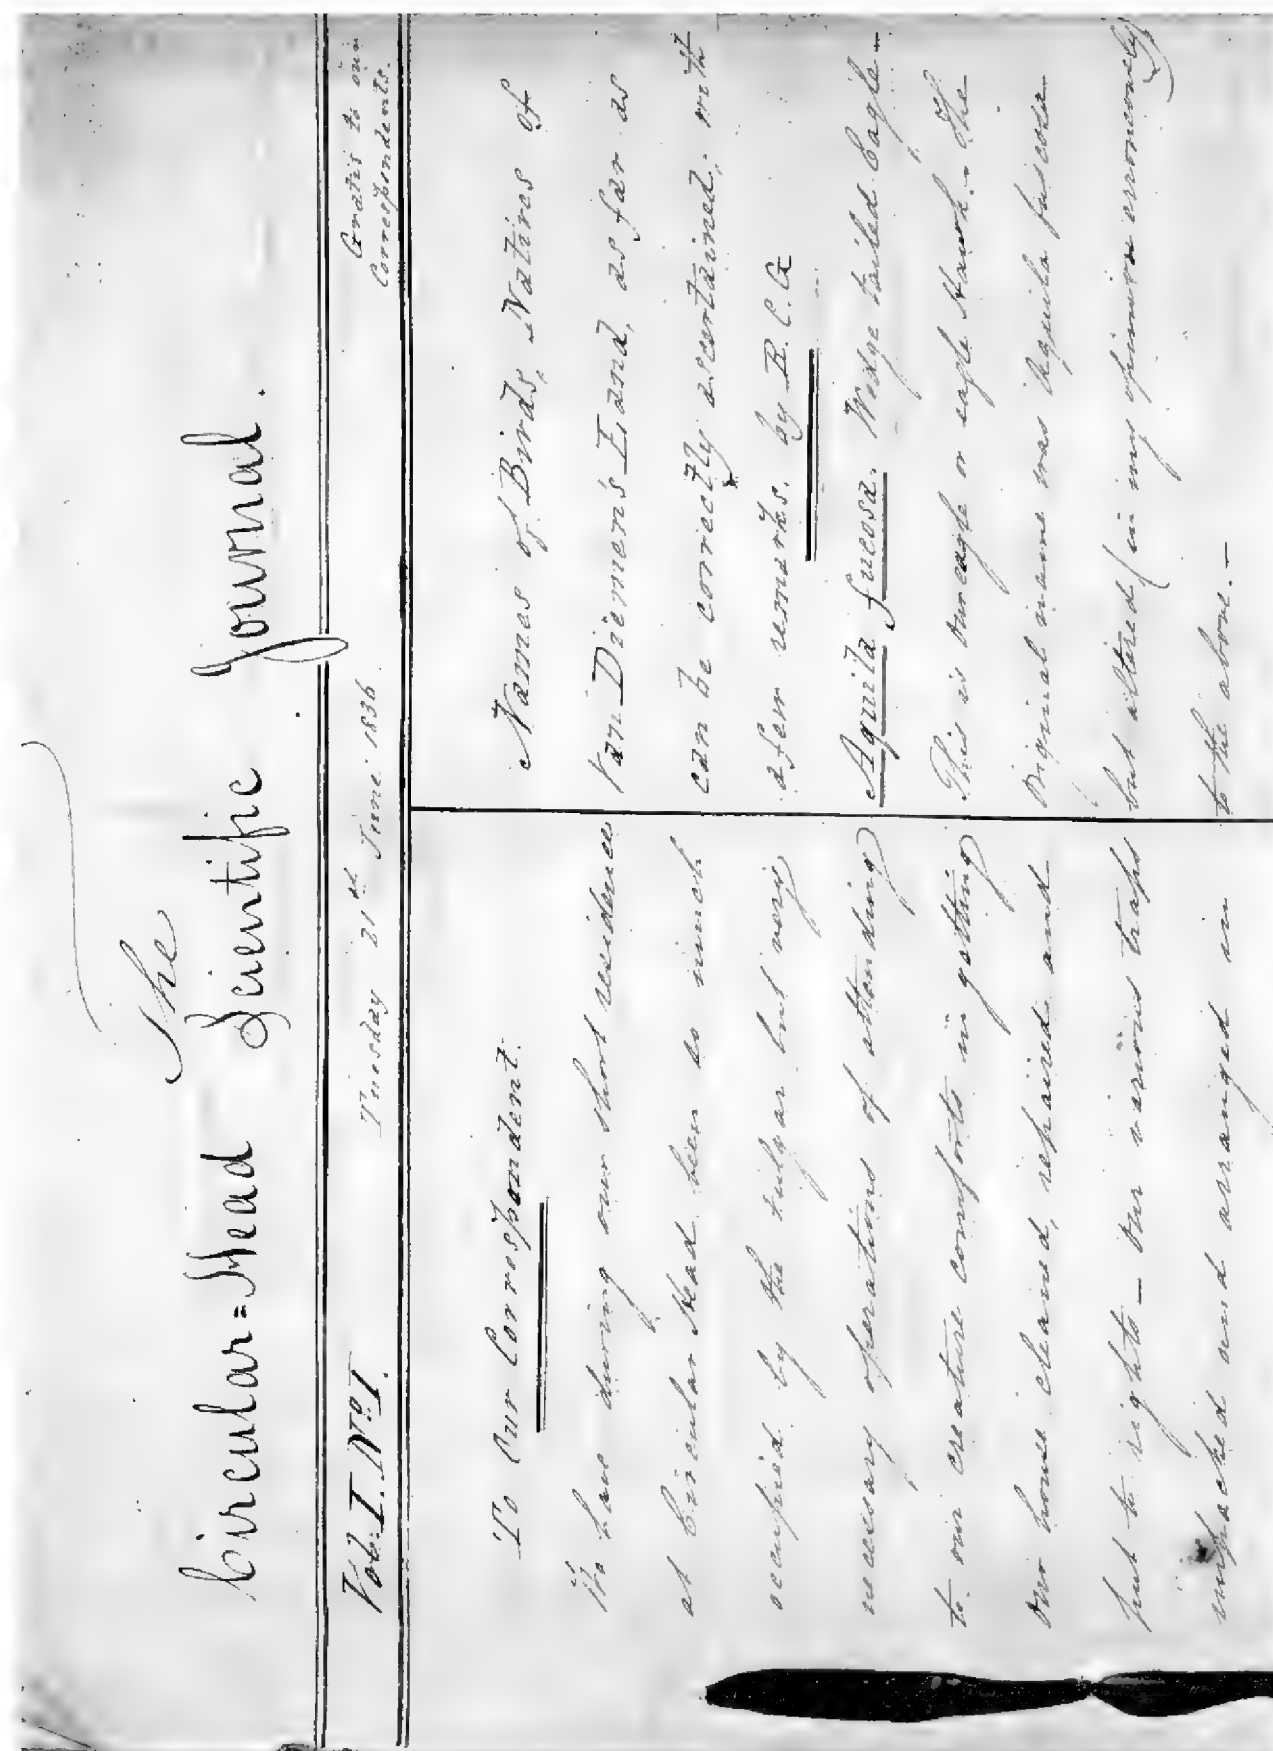 The
Circular=Head Scientific Journal.
Vol: I. No. I.
Tuesday 21st June 1836
Gratis to our
Correspondents.
To Our Correspondent.
We have during our short residence
at Circular Head been so much
occupied by the vulgar but very
necessary operations of attending
to our creature comforts in getting
our house cleaned, repaired and
put to rights — our various traps
unpacked and arranged in
Names of Birds, Natives of
Van Diemen's Land, as far as
can be correctly ascertained; with
a few remarks, by R.C.G
Aquila fucosa. Wedge tailed Eagle —
This is our eagle or eagle Hawk — the
original name was Aquila fuscosa
but altered (in my opinion erroneously)
to the above. —